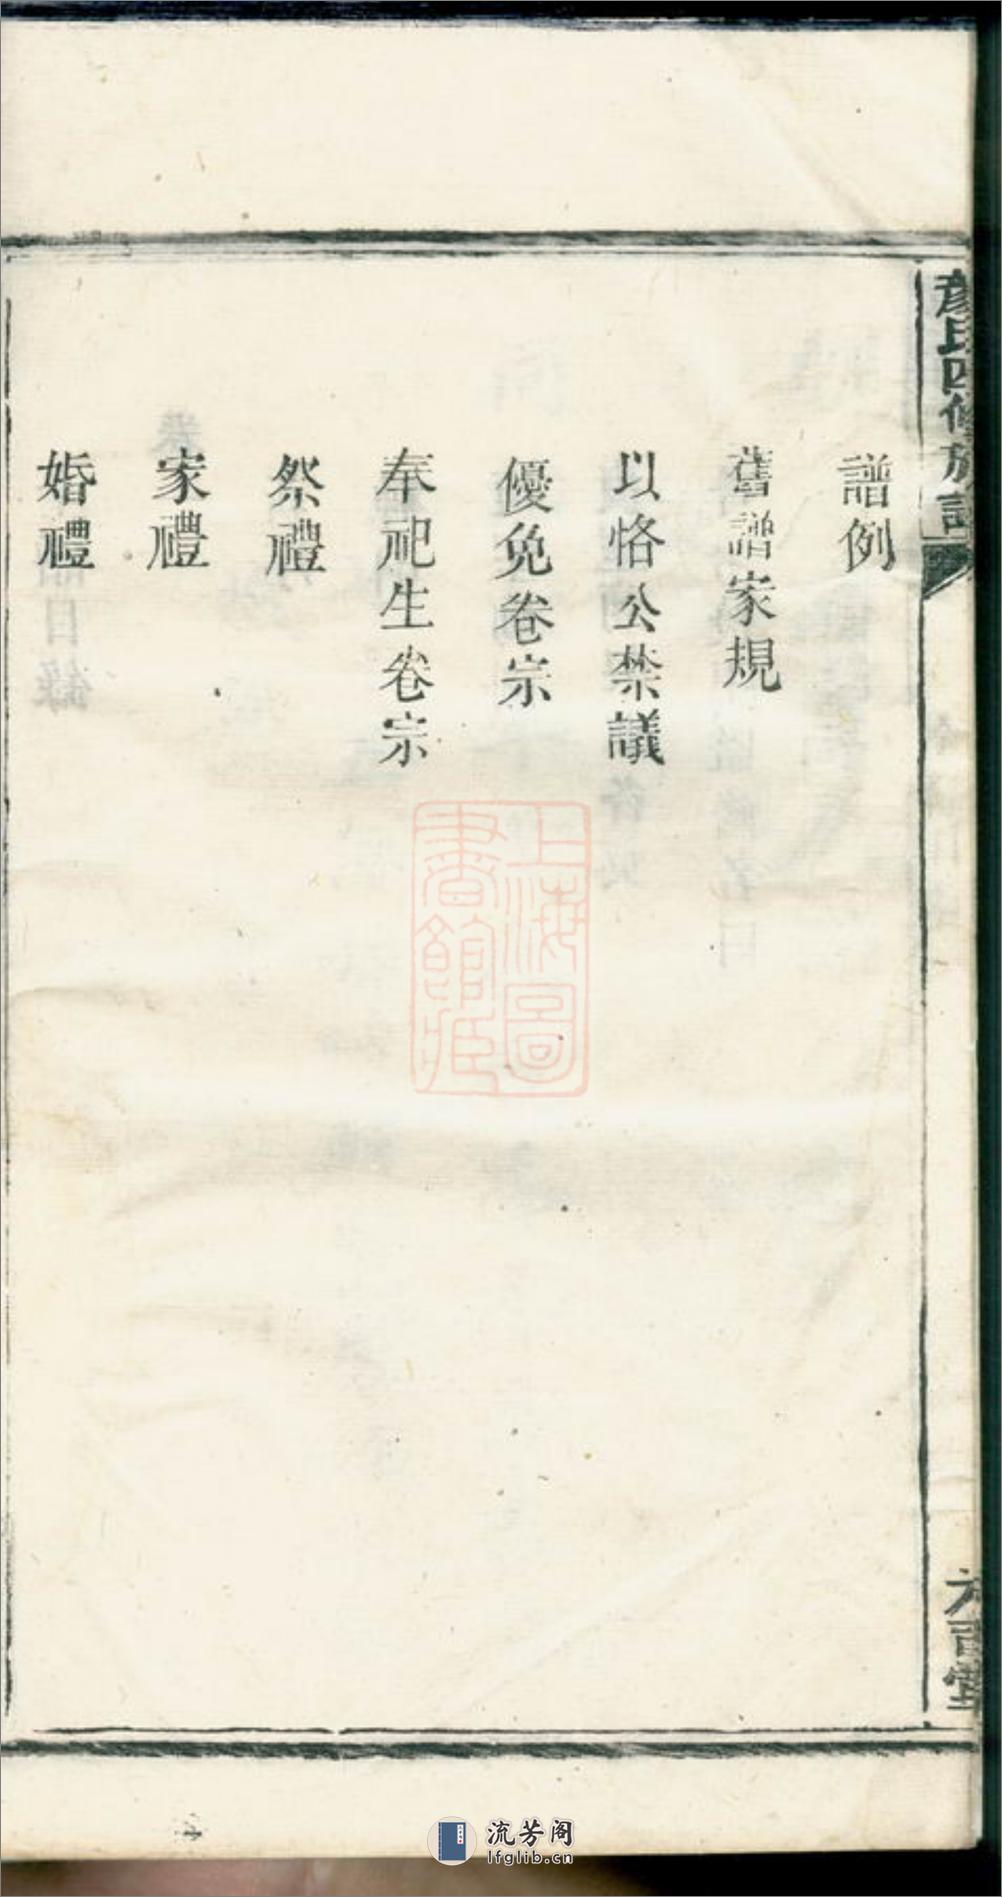 彥氏四修族譜
譜例
舊譜家規
以恪公禁議
優免卷宗
奉祀生卷宗
祭禮
家禮
婚禮
堂
上海圖
書館藏
流芳阁
lfglib.cn